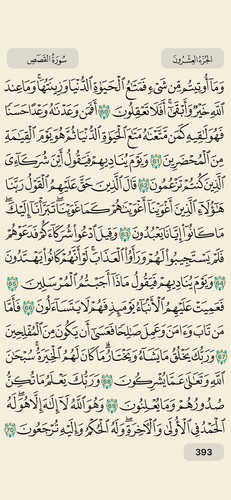 الجُزْءُ العِشْرُونَ
سُورَةُ القَصَصِ
وَمَآ أُوتِيتُم مِّن شَىْءٍ فَمَتَٰعُ ٱلْحَيَوٰةِ ٱلدُّنْيَا وَزِينَتُهَا ۚ وَمَا عِندَ
ٱللَّهِ خَيْرٌ وَأَبْقَىٰٓ ۚ أَفَلَا تَعْقِلُونَ 60 أَفَمَن وَعَدْنَٰهُ وَعْدًا حَسَنًا
فَهُوَ لَٰقِيهِ كَمَن مَّتَّعْنَٰهُ مَتَٰعَ ٱلْحَيَوٰةِ ٱلدُّنْيَا ثُمَّ هُوَ يَوْمَ ٱلْقِيَٰمَةِ
مِنَ ٱلْمُحْضَرِينَ 61 وَيَوْمَ يُنَادِيهِمْ فَيَقُولُ أَيْنَ شُرَكَآءِىَ
ٱلَّذِينَ كُنتُمْ تَزْعُمُونَ 62 قَالَ ٱلَّذِينَ حَقَّ عَلَيْهِمُ ٱلْقَوْلُ رَبَّنَا
هَٰٓؤُلَآءِ ٱلَّذِينَ أَغْوَيْنَآ أَغْوَيْنَٰهُمْ كَمَا غَوَيْنَا ۖ تَبَرَّأْنَآ إِلَيْكَ ۖ
مَا كَانُوٓا۟ إِيَّانَا يَعْبُدُونَ 63 وَقِيلَ ٱدْعُوا۟ شُرَكَآءَكُمْ فَدَعَوْهُمْ
فَلَمْ يَسْتَجِيبُوا۟ لَهُمْ وَرَأَوُا۟ ٱلْعَذَابَ ۚ لَوْ أَنَّهُمْ كَانُوا۟ يَهْتَدُونَ
64 وَيَوْمَ يُنَادِيهِمْ فَيَقُولُ مَاذَآ أَجَبْتُمُ ٱلْمُرْسَلِينَ 65
فَعَمِيَتْ عَلَيْهِمُ ٱلْأَنۢبَآءُ يَوْمَئِذٍ فَهُمْ لَا يَتَسَآءَلُونَ 66 فَأَمَّا
مَن تَابَ وَءَامَنَ وَعَمِلَ صَٰلِحًا فَعَسَىٰٓ أَن يَكُونَ مِنَ ٱلْمُفْلِحِينَ
67 وَرَبُّكَ يَخْلُقُ مَا يَشَآءُ وَيَخْتَارُ ۗ مَا كَانَ لَهُمُ ٱلْخِيَرَةُ ۚ سُبْحَٰنَ
ٱللَّهِ وَتَعَٰلَىٰ عَمَّا يُشْرِكُونَ 68 وَرَبُّكَ يَعْلَمُ مَا تُكِنُّ
صُدُورُهُمْ وَمَا يُعْلِنُونَ 69 وَهُوَ ٱللَّهُ لَآ إِلَٰهَ إِلَّا هُوَ ۖ لَهُ
ٱلْحَمْدُ فِى ٱلْأُولَىٰ وَٱلْءَاخِرَةِ ۖ وَلَهُ ٱلْحُكْمُ وَإِلَيْهِ تُرْجَعُونَ 70
393